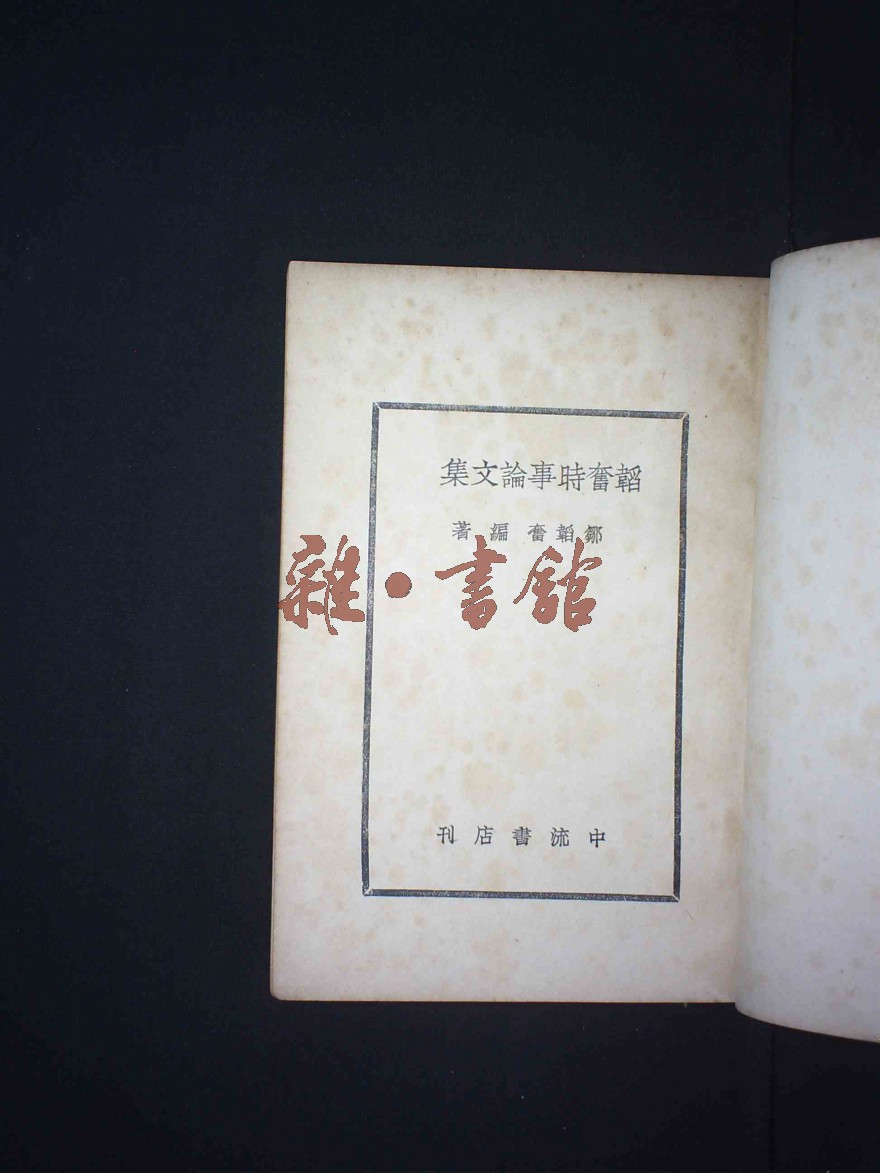 韜奮時事論文集
鄒韜奮 編著
雜·書館
中流書店刊